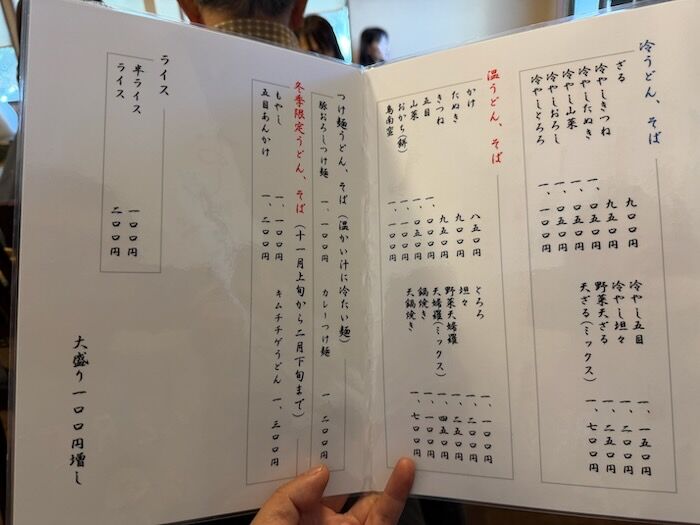 冷うどん、そば
ざる 九〇〇円
冷やしきつね 九五〇円
冷やしたぬき 九五〇円
冷やし山菜 一、〇五〇円
冷やしおろし 一、〇五〇円
冷やしとろろ 一、一〇〇円
冷やし五目 一、一五〇円
冷やし坦々 一、二〇〇円
野菜天ざる
天ざる(ミックス)
温うどん、そば
かけ 八五〇円
たぬき 九〇〇円
きつね 九五〇円
五目
山菜 一、〇五〇円
おかち(餅)
鳥南蛮 一、一〇〇円
とろろ 一、一〇〇円
坦々 一、二〇〇円
野菜天婦羅
天婦羅(ミックス) 一、四五〇円
鍋焼き
天鍋焼き 一、七〇〇円
つけ麺うどん、そば(温かい汁に冷たい麺)
豚おろしつけ麺 一、一〇〇円
カレーつけ麺 一、二〇〇円
冬季限定うどん、そば(十一月上旬から二月下旬まで)
もやし 一、一〇〇円
五目あんかけ 一、二〇〇円
キムチチゲうどん 一、三〇〇円
ライス
半ライス 一〇〇円
ライス 二〇〇円
大盛り一〇〇円増し